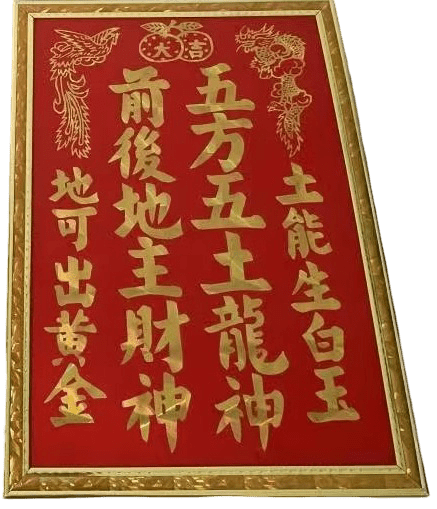 大吉
土能生白玉
五方五土龍神
前後地主財神
地可出黃金